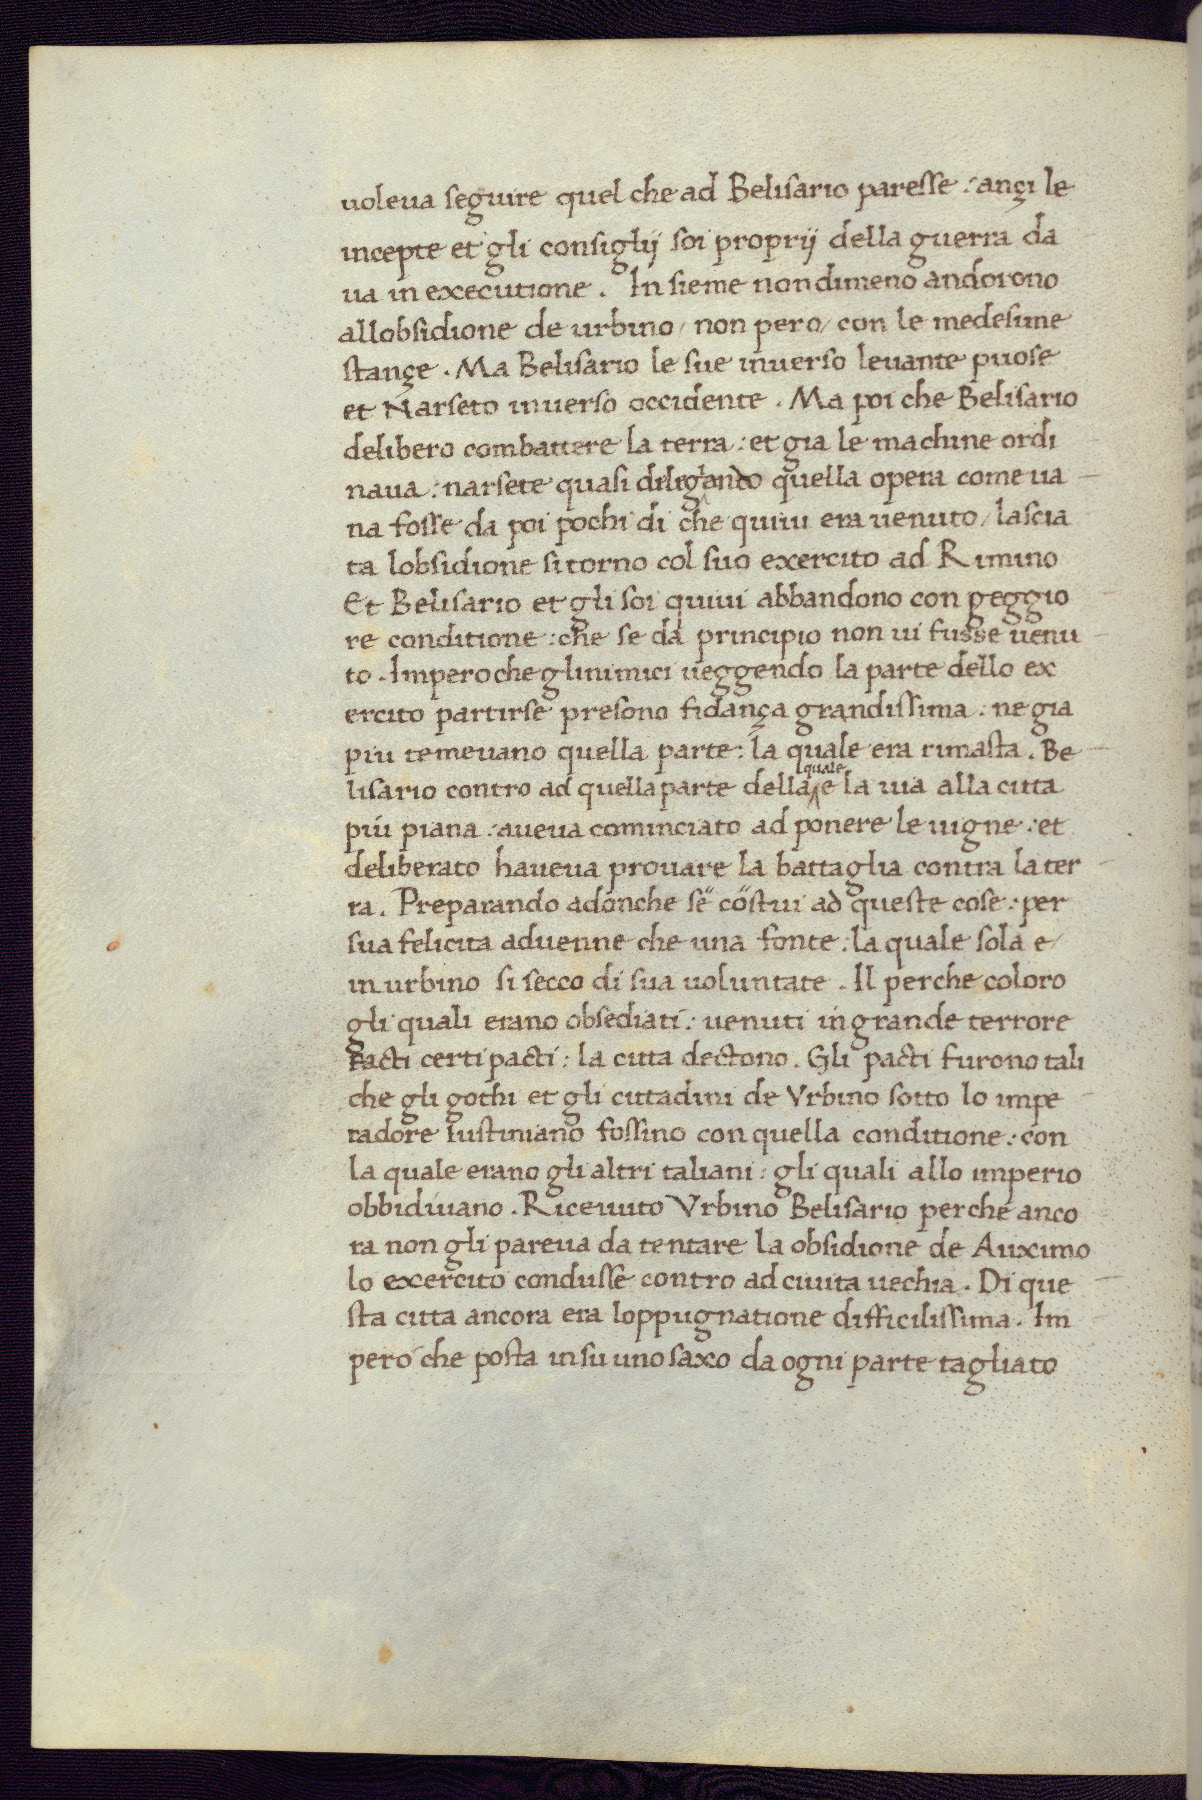 uoleua seguire quel che ad Belisario paresse : ançi le
incepte et gli consiglij soi proprij della guerra da
ua in executione . In sieme nondimeno andorono
allobsidione de urbino / non pero / con le medesime
stançe . Ma Belisario le sue inuerso leuante puose
et Narseto inuerso occidente . Ma poi che Belisario
delibero combattere la terra : et gia le machine ordi
naua : narsete quasi quella opera come ua
na fosse da poi pochi di che quiui era uenuto / lascia
ta lobsidione si torno col suo exercito ad Rimino
Et Belisario et gli soi quiui abbandono con peggio
re conditione : che se da principio non ui fusse uenu
to . Imperoche glinimici ueggendo la parte dello ex
ercito partirse presono fidança grandissima : ne gia
piu temeuano quella parte : la quale era rimasta . Be
lisario contro ad quella parte della lquale e la uia alla citta
piu piana : aueua cominciato ad ponere le uigne : et
deliberato haueua prouare la battaglia contra la ter
ra . Preparando adonche se costui ad queste cose : per
sua felicita aduenne che una fonte : la quale sola e /
in urbino si secco di sua uoluntate . Il perche coloro
gli quali erano obsediati : uenuti in grande terrore
facti certi pacti : la citta dectono . Gli pacti furono tali
che gli gothi et gli cittadini de Vrbino sotto lo impe
radore iustiniano fossino con quella conditione : con
la quale erano gli altri taliani : gli quali allo imperio
obbidiuano . Riceuuto Vrbino Belisario perche anco
ra non gli pareua da tentare la obsidione de Auximo
lo exercito condusse contro ad ciuita uechia . Di que
sta citta ancora era loppugnatione difficilissima . Im
pero che posta in su uno saxo da ogni parte tagliato